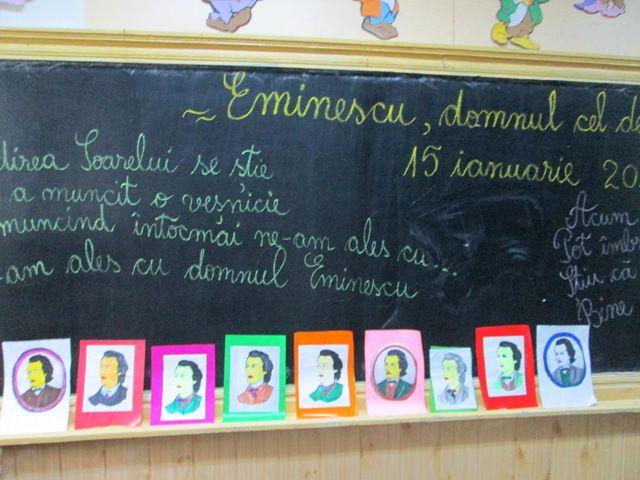 ~ Eminescu, domnul cel de
15 ianuarie 20
direa Soarelui se știe
a muncit o veșnicie
muncind întocmai ne-am ales cu...
-am ales cu domnul Eminescu
Acum
Tot îmb
Știu că
Bine